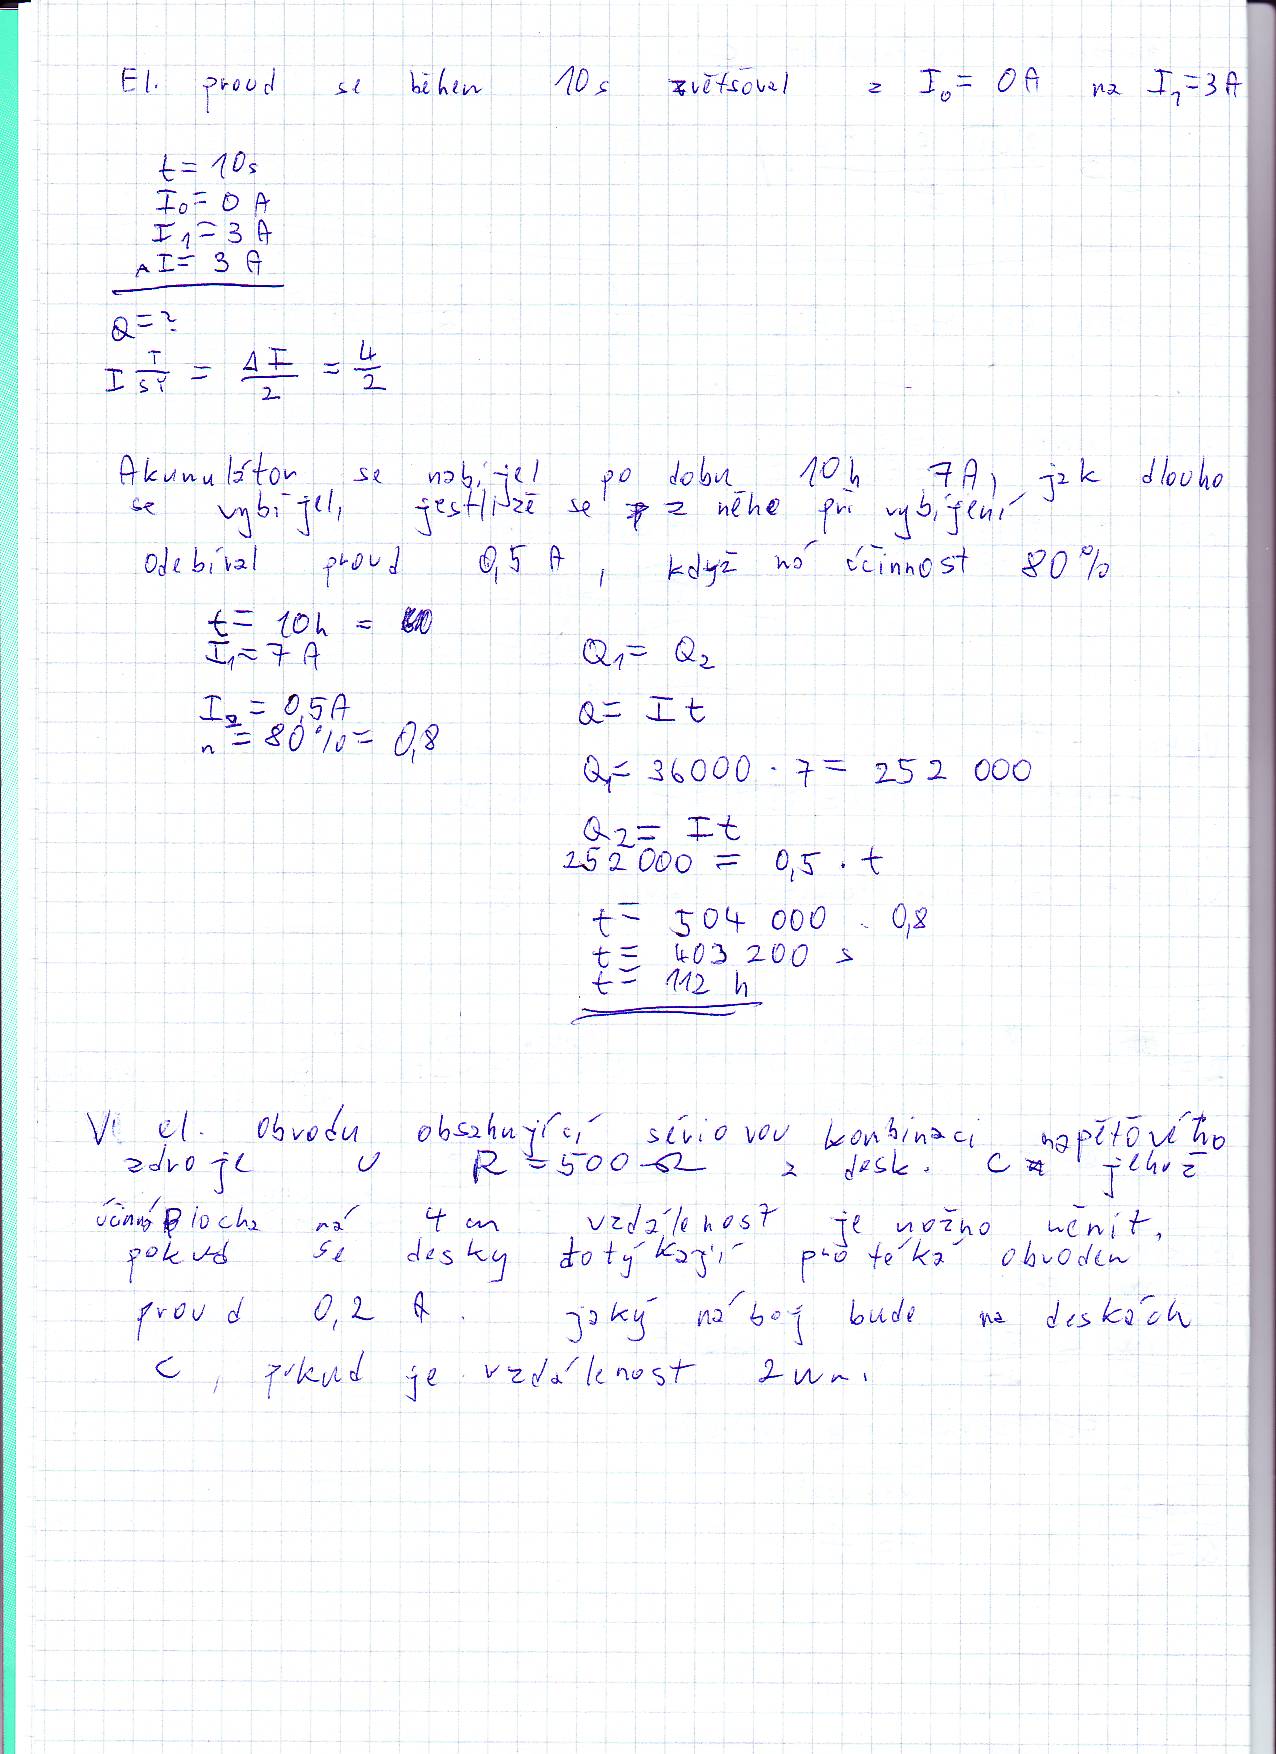 El. proud se během 10s zvětšoval z I₀ = 0A na I₁ = 3A
t = 10s
I₀ = 0 A
I₁ = 3 A
ΔI = 3 A
Q = ?
I = ΔI/2 = 4/2
Akumulátor se nabíjel po dobu 10h 7A, jak dlouho
se vybíjel, jestliže se z něho při vybíjení
odebíral proud 0,5 A, když má účinnost 80%
t = 10h =
I₁ = 7 A
I₂ = 0,5A
n = 80% = 0,8
Q₁ = Q₂
Q = It
Q₁ = 36000 · 7 = 252 000
Q₂ = It
252 000 = 0,5 · t
t = 504 000 · 0,8
t = 403 200 s
t = 112 h
V el. obvodu obsahující sériovou kombinaci napětového
zdroje U R = 500 Ω a desk. C jehož
účinná plocha má 4 cm vzdálenost je možno měnit,
pokud se desky dotýkají protéká obvodem
proud 0,2 A. jaký náboj bude na deskách
C, pokud je vzdálenost 2